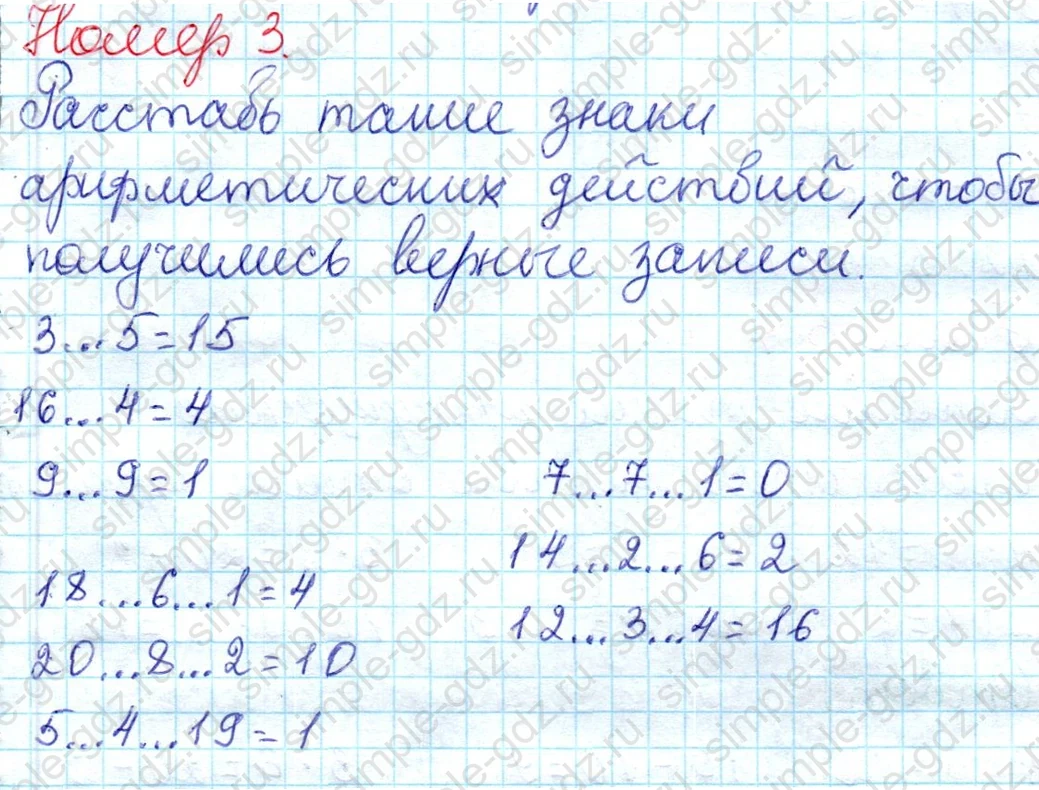 Номер 3.
Расставь такие знаки
арифметических действий, чтобы
получились верные записи.
3...5=15
16...4=4
9...9=1
18...6...1=4
20...8...2=10
5...4...19=1
7...7...1=0
14...2...6=2
12...3...4=16
simple-gdz.ru